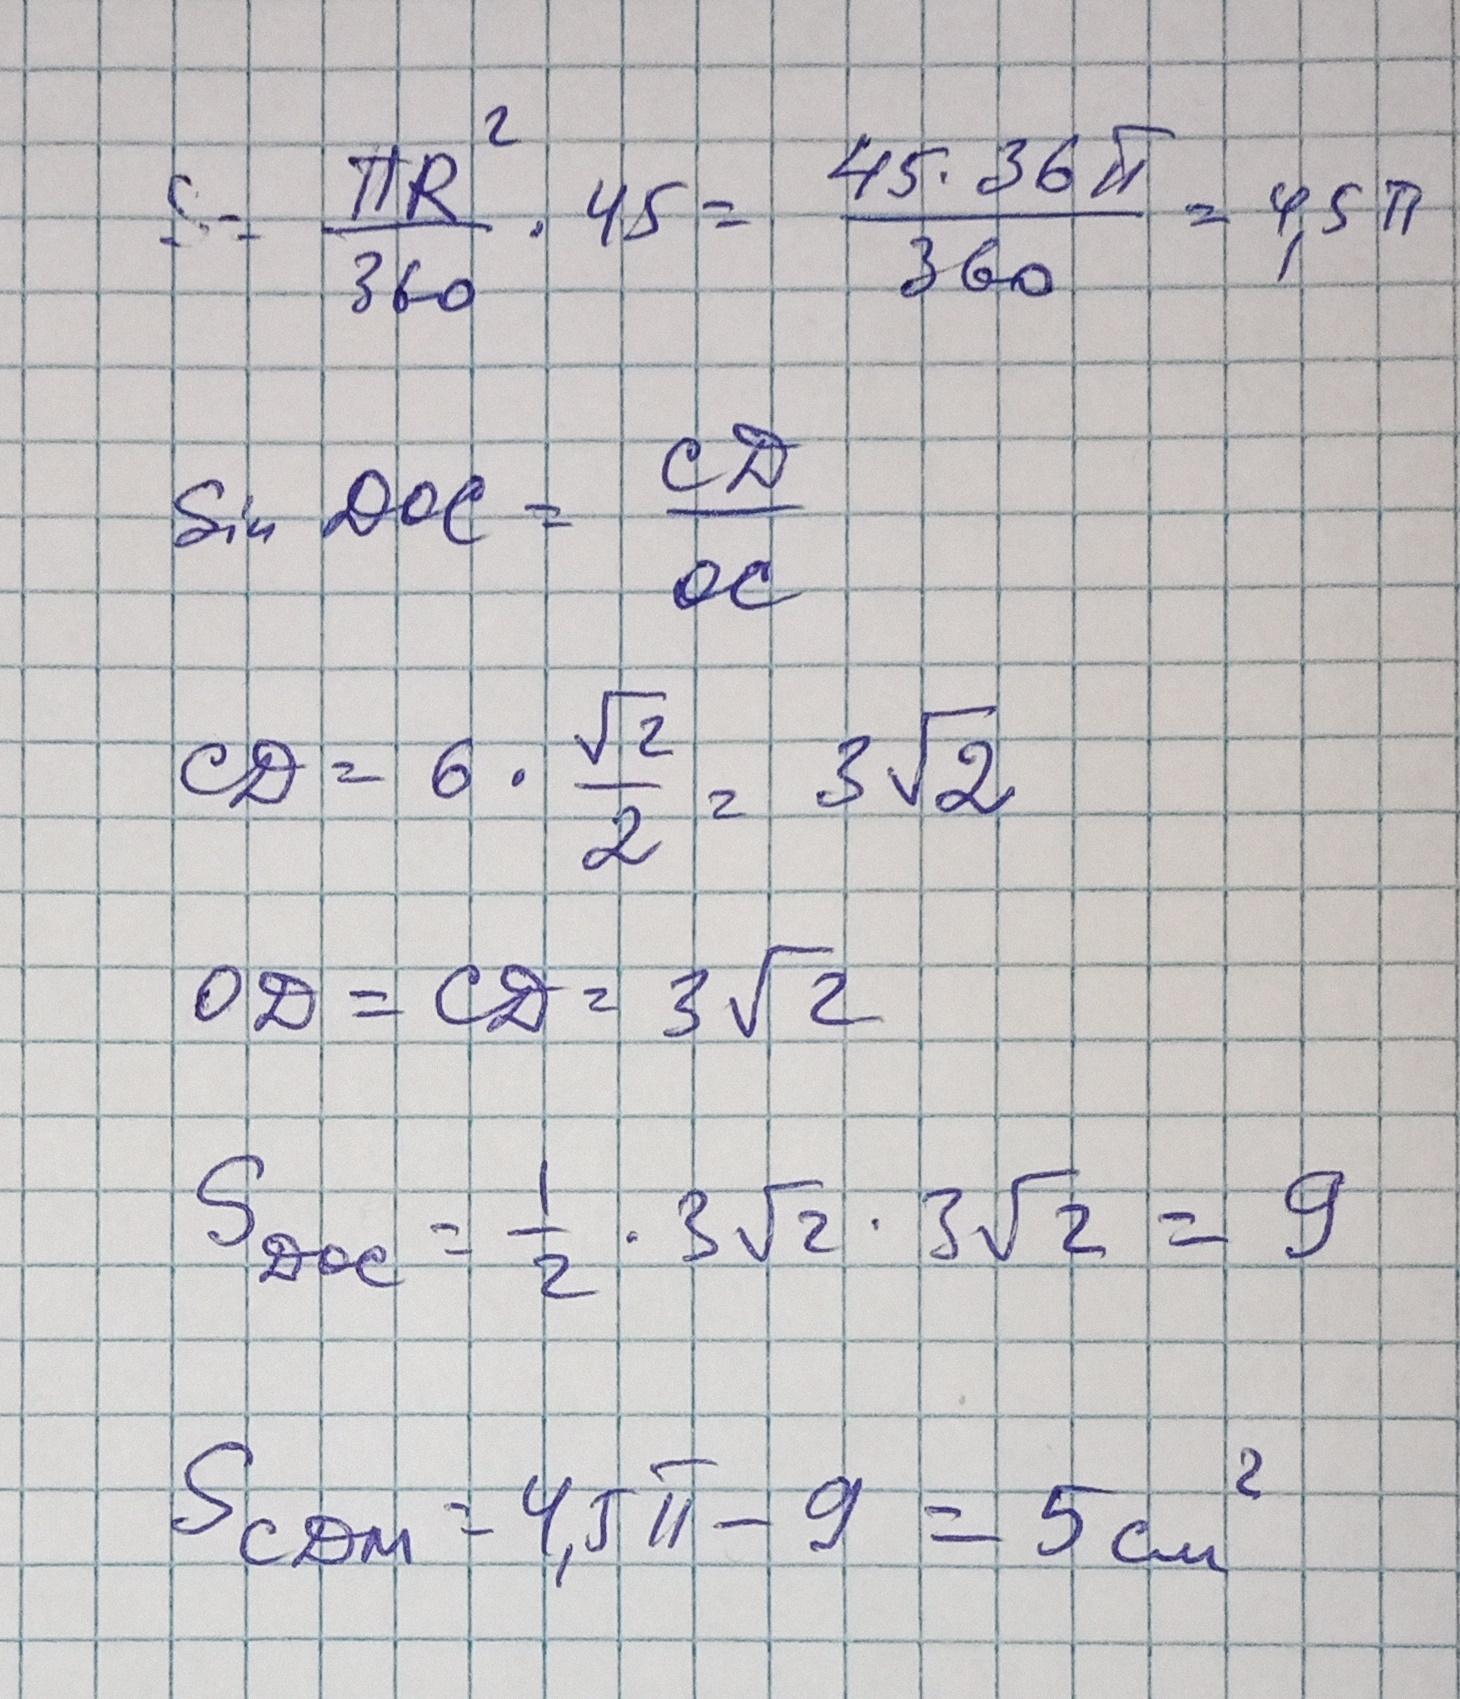 S = πR² / 360 · 45 = 45 · 36π / 360 = 4,5π
Sin DOC = CD / OC
CD = 6 · √2 / 2 = 3√2
OD = CD = 3√2
S DOC = 1 / 2 · 3√2 · 3√2 = 9
S CDM = 4,5π - 9 = 5 см²